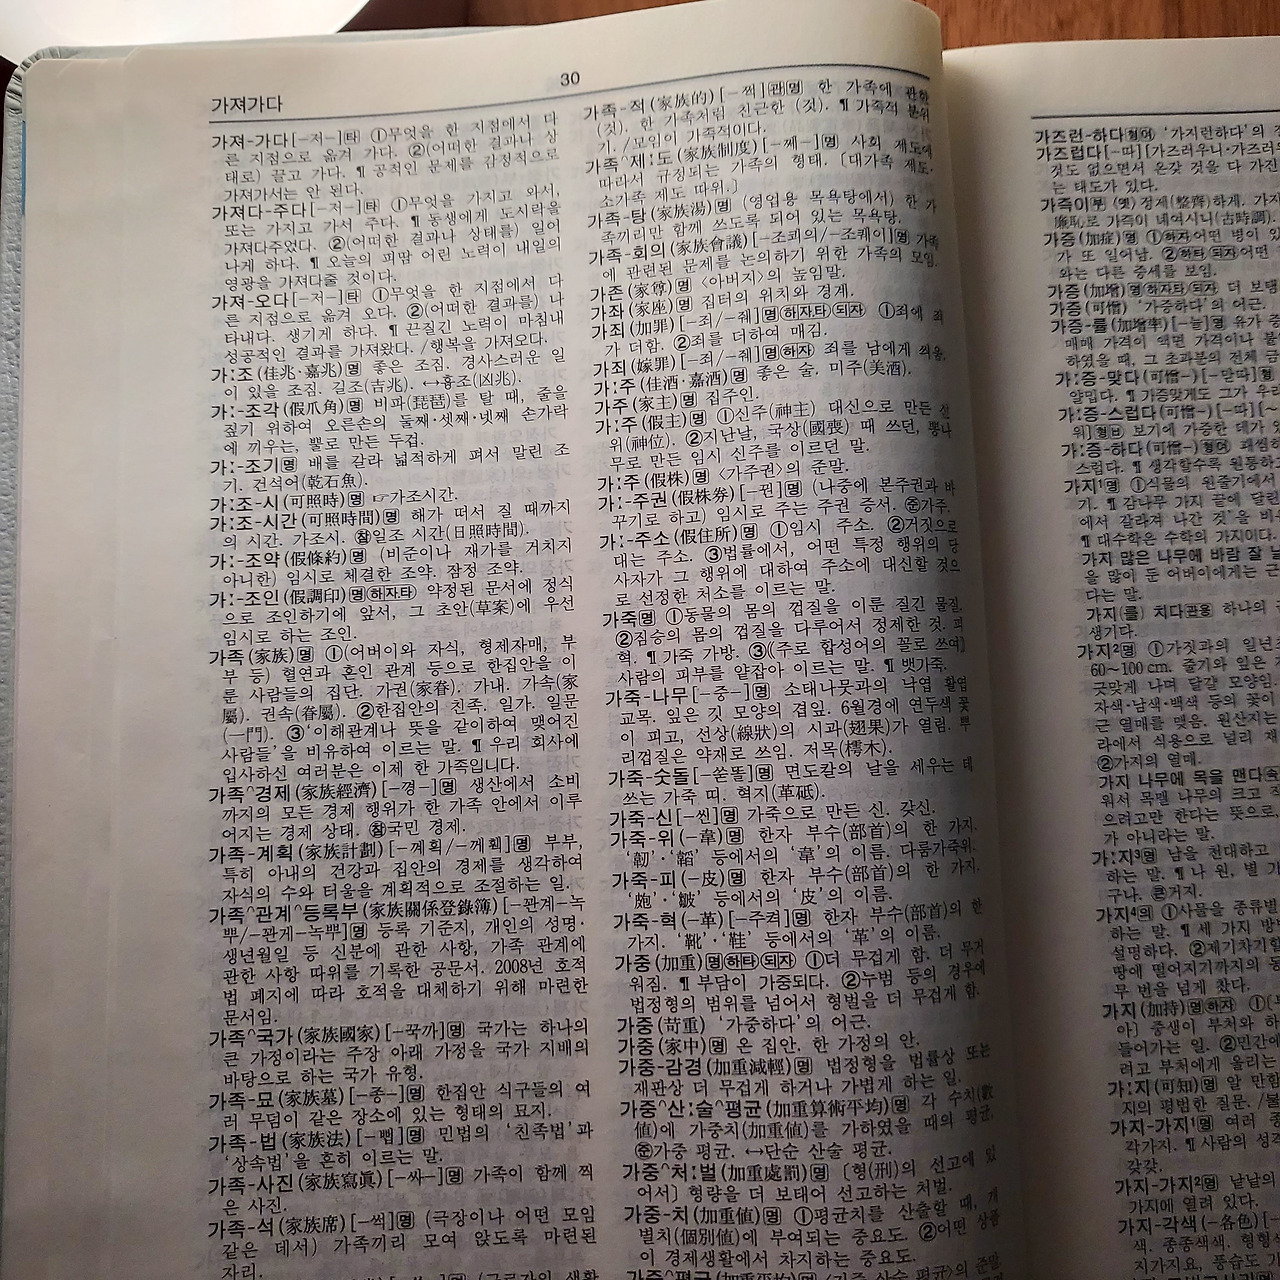 가져가다
30
가져-가다[-저-]타 ①무엇을 한 지점에서 다
른 지점으로 옮겨 가다. ②(어떠한 결과나 상
태로) 끌고 가다. ¶ 공적인 문제를 감정적으로
가져가서는 안 된다.
가져다-주다[-저-]타 ①무엇을 가지고 와서,
또는 가지고 가서 주다. ¶ 동생에게 도시락을
가져다주었다. ②(어떠한 결과나 상태를) 일어
나게 하다. ¶ 오늘의 피땀 어린 노력이 내일의
영광을 가져다줄 것이다.
가져-오다[-저-]타 ①무엇을 한 지점에서 다
른 지점으로 옮겨 오다. ②(어떠한 결과를) 나
타내다. 생기게 하다. ¶ 끈질긴 노력이 마침내
성공적인 결과를 가져왔다. /행복을 가져오다.
가:조(佳兆·嘉兆)명 좋은 조짐. 경사스러운 일
이 있을 조짐. 길조(吉兆). ↔흉조(凶兆).
가:-조각(假爪角)명 비파(琵琶)를 탈 때, 줄을
짚기 위하여 오른손의 둘째·셋째·넷째 손가락
에 끼우는, 뿔로 만든 두겁.
가:-조기명 배를 갈라 넓적하게 펴서 말린 조
기. 건석어(乾石魚).
가:조-시(可照時)명 ☞가조시간.
가:조-시간(可照時間)명 해가 떠서 질 때까지
의 시간. 가조시. 참일조 시간(日照時間).
가:-조약(假條約)명 (비준이나 재가를 거치지
아니한) 임시로 체결한 조약. 잠정 조약.
가:-조인(假調印)명하자타 약정된 문서에 정식
으로 조인하기에 앞서, 그 초안(草案)에 우선
임시로 하는 조인.
가족(家族)명 ①(어버이와 자식, 형제자매, 부
부 등) 혈연과 혼인 관계 등으로 한집안을 이
룬 사람들의 집단. 가권(家眷). 가내. 가속(家
屬). 권속(眷屬). ②한집안의 친족. 일가. 일문
(一門). ③'이해관계나 뜻을 같이하여 맺어진
사람들'을 비유하여 이르는 말. ¶ 우리 회사에
입사하신 여러분은 이제 한 가족입니다.
가족^경제(家族經濟)[-경-]명 생산에서 소비
까지의 모든 경제 행위가 한 가족 안에서 이루
어지는 경제 상태. 참국민 경제.
가족-계획(家族計劃)[-꼐획/-께휔]명 부부,
특히 아내의 건강과 집안의 경제를 생각하여
자식의 수와 터울을 계획적으로 조절하는 일.
가족^관계^등록부(家族關係登錄簿)[-꽌계-녹
뿌/-꽌게-녹뿌]명 등록 기준지, 개인의 성명·
생년월일 등 신분에 관한 사항, 가족 관계에
관한 사항 따위를 기록한 공문서. 2008년 호적
법 폐지에 따라 호적을 대체하기 위해 마련한
문서임.
가족^국가(家族國家)[-꾹까]명 국가는 하나의
큰 가정이라는 주장 아래 가정을 국가 지배의
바탕으로 하는 국가 유형.
가족-묘(家族墓)[-종-]명 한집안 식구들의 여
러 무덤이 같은 장소에 있는 형태의 묘지.
가족-법(家族法)[-뻡]명 민법의 '친족법'과
'상속법'을 흔히 이르는 말.
가족-사진(家族寫眞)[-싸-]명 가족이 함께 찍
은 사진.
가족-석(家族席)[-썩]명 (극장이나 어떤 모임
같은 데서) 가족끼리 모여 앉도록 마련된
자리.
가족-적(家族的)[-쩍]관명 한 가족에 관한
(것). 한 가족처럼 친근한 (것). ¶ 가족적 분위
기. /모임이 가족적이다.
가족^제:도(家族制度)[-쩨-]명 사회 제도에
따라서 규정되는 가족의 형태. 〔대가족 제도·
소가족 제도 따위.〕
가족-탕(家族湯)명 (영업용 목욕탕에서) 한 가
족끼리만 함께 쓰도록 되어 있는 목욕탕.
가족-회의(家族會議)[-조쾨의/-조퀘이]명 가족
에 관련된 문제를 논의하기 위한 가족의 모임.
가존(家尊)명 〈아버지〉의 높임말.
가좌(家座)명 집터의 위치와 경계.
가죄(加罪)[-죄/-줴]명하자타되자 ①죄에 죄
가 더함. ②죄를 더하여 매김.
가죄(嫁罪)[-죄/-줴]명하자 죄를 남에게 씌움.
가:주(佳酒·嘉酒)명 좋은 술. 미주(美酒).
가주(家主)명 집주인.
가:주(假主)명 ①신주(神主) 대신으로 만든 신
위(神位). ②지난날, 국상(國喪) 때 쓰던, 뽕나
무로 만든 임시 신주를 이르던 말.
가:주(假株)명 〈가주권〉의 준말.
가:-주권(假株券)[-꿘]명 (나중에 본주권과 바
꾸기로 하고) 임시로 주는 주권 증서. 준가주.
가:-주소(假住所)명 ①임시 주소. ②거짓으로
대는 주소. ③법률에서, 어떤 특정 행위의 당
사자가 그 행위에 대하여 주소에 대신할 것으
로 선정한 처소를 이르는 말.
가죽명 ①동물의 몸의 껍질을 이룬 질긴 물질.
②짐승의 몸의 껍질을 다루어서 정제한 것. 피
혁. ¶ 가죽 가방. ③《주로 합성어의 꼴로 쓰여》
사람의 피부를 얕잡아 이르는 말. ¶ 뱃가죽.
가죽-나무[-중-]명 소태나뭇과의 낙엽 활엽
교목. 잎은 깃 모양의 겹잎. 6월경에 연두색 꽃
이 피고, 선상(線狀)의 시과(翅果)가 열림. 뿌
리껍질은 약재로 쓰임. 저목(樗木).
가죽-숫돌[-쑫똘]명 면도칼의 날을 세우는 데
쓰는 가죽 띠. 혁지(革砥).
가죽-신[-씬]명 가죽으로 만든 신. 갖신.
가죽-위(-韋)명 한자 부수(部首)의 한 가지.
'韌'·'韜' 등에서의 '韋'의 이름. 다룸가죽위.
가죽-피(-皮)명 한자 부수(部首)의 한 가지.
'皰'·'皺' 등에서의 '皮'의 이름.
가죽-혁(-革)[-주켝]명 한자 부수(部首)의 한
가지. '靴'·'鞋' 등에서의 '革'의 이름.
가중(加重)명하타되자 ①더 무겁게 함. 더 무거
워짐. ¶ 부담이 가중되다. ②누범 등의 경우에
법정형의 범위를 넘어서 형벌을 더 무겁게 함.
가중(苛重) '가중하다'의 어근.
가중(家中)명 온 집안. 한 가정의 안.
가중-감경(加重減輕)명 법정형을 법률상 또는
재판상 더 무겁게 하거나 가볍게 하는 일.
가중^산:술^평균(加重算術平均)명 각 수치(數
値)에 가중치(加重値)를 가하였을 때의 평균.
준가중 평균. ↔단순 산술 평균.
가중^처:벌(加重處罰)명 〔형(刑)의 선고에 있
어서〕 형량을 더 보태어 선고하는 처벌.
가중-치(加重値)명 ①평균치를 산출할 때, 개
별치(個別値)에 부여되는 중요도. ②어떤 상품
이 경제생활에서 차지하는 중요도.
가중^평균(加重平均)명 〈가중 산술 평균〉의 준말.
가즈런-하다형여 '가지런하다'의
가즈럽다[-따][가즈러우니·가즈러
것도 없으면서 온갖 것을 다 가진
는 태도가 있다.
가즉이부 (옛) 정제(整齊)하게. 가지
廉恥로 가즉이 녜여시니(古時調).
가증(加症)명 ①하자어떤 병이 있
가 또 일어남. ②하타되자어떤
와는 다른 증세를 보임.
가증(加增)명하자타되자 더 보탬
가증(可憎) '가증하다'의 어근.
가증-률(加增率)[-뉼]명 유가 증
매매 가격이 액면 가격이나 불
하였을 때, 그 초과분의 전체 금
가:증-맞다(可憎-)[-맏따]형
얄밉다. ¶ 가증맞게도 그가 우리
가:증-스럽다(可憎-)[-따][~
워]형ㅂ 보기에 가증한 데가 있
가:증-하다(可憎-)형여 괘씸하
스럽다. ¶ 생각할수록 원통하고
가지¹명 ①식물의 원줄기에서
기. ¶ 감나무 가지 끝에 달린
에서 갈라져 나간 것'을 비유
¶ 대수학은 수학의 가지이다.
가지 많은 나무에 바람 잘 날
을 많이 둔 어버이에게는 근
다는 말.
가지(를) 치다관용 하나의
생기다.
가지²명 ①가짓과의 일년
60~100 cm. 줄기와 잎은
긋맞게 나며 달걀 모양임.
자색·남색·백색 등의 꽃이
근 열매를 맺음. 원산지는
라에서 식용으로 널리 재
②가지의 열매.
가지 나무에 목을 맨다속
워서 목맬 나무의 크고
으려고만 한다는 뜻으로,
가 아니라는 말.
가:지³명 남을 천대하고
하는 말. ¶ 나 원, 별 가
구나. 큰거지.
가지⁴의 ①사물을 종류별
하는 말. ¶ 세 가지 방
설명하다. ②제기차기
땅에 떨어지기까지의 동
무 번을 넘게 찼다.
가지(加持)명하자 ①〔
아〕 중생이 부처와 하
들어가는 일. ②민간에
려고 부처에게 올리는
가:지(可知)명 알 만함
지의 평범한 질문. /불
가지-가지¹명 여러
각가지. ¶ 사람의 성격
갖갖.
가지-가지²명 낱낱의
가지에 열려 있다.
가지-각색(-各色)[-
색. 종종색색. 형형색
지가지요, 풍습도